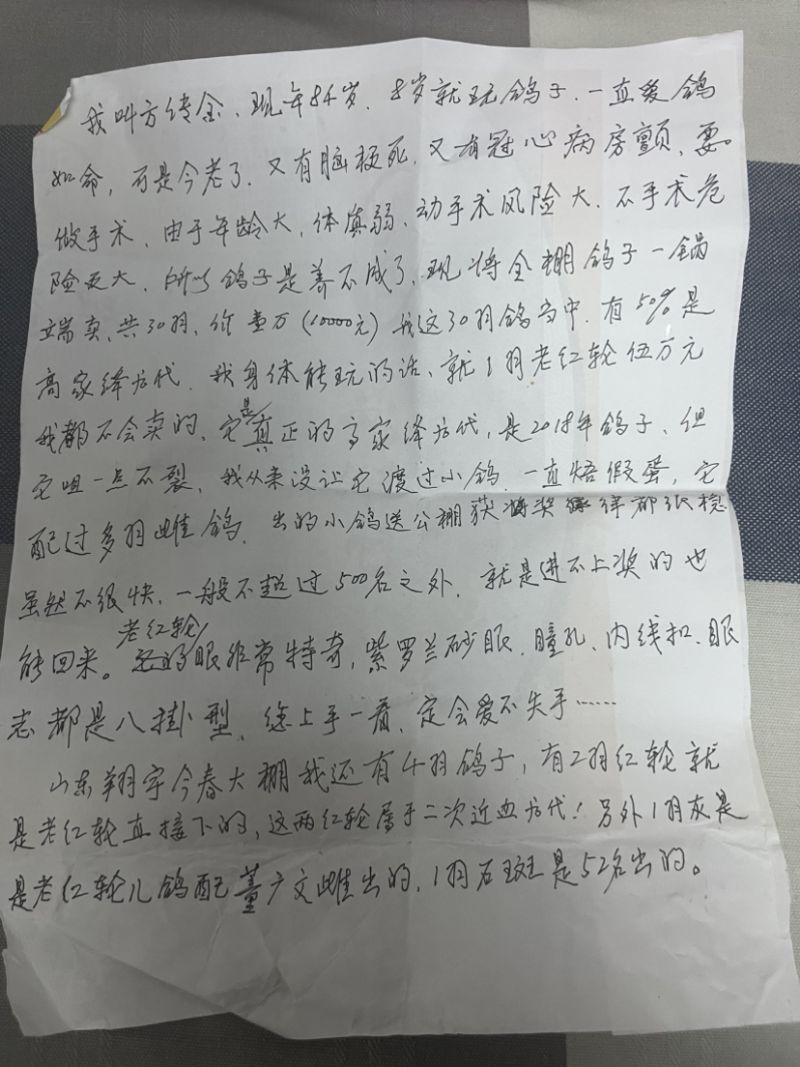 我叫方传金、现年84岁、8岁就玩鸽子、一直爱鸽
如命，可是今老了、又有脑梗死、又有冠心病房颤、要
做手术、由于年龄大、体真弱、动手术风险大、不手术危
险更大、所以鸽子是养不成了、现将全棚鸽子一锅
端卖、共30羽、价壹万(10000元)我这30羽鸽当中、有50%是
高家绛后代、我身体能玩的话、就1羽老红轮伍万元
我都不会卖的、它是真正的高家绛后代，是2018年鸽子、但
它咀一点不裂、我从来没让它渡过小鸽、一直焐假蛋，它
配过多羽雌鸽、出的小鸽送公棚获奖 年年都很稳
虽然不很快、一般不超过500名之外、就是进不上奖的也
能回来。老红轮眼非常特奇，紫罗兰砂眼、瞳孔、内线扣、眼
志都是八卦型、您上手一看、定会爱不失手……
山东翔宇今春大棚我还有4羽鸽子，有2羽红轮就
是老红轮直接下的，这两红轮属于二次近血后代！另外1羽灰是
是老红轮儿鸽配董广文雌出的、1羽石斑是52名出的。